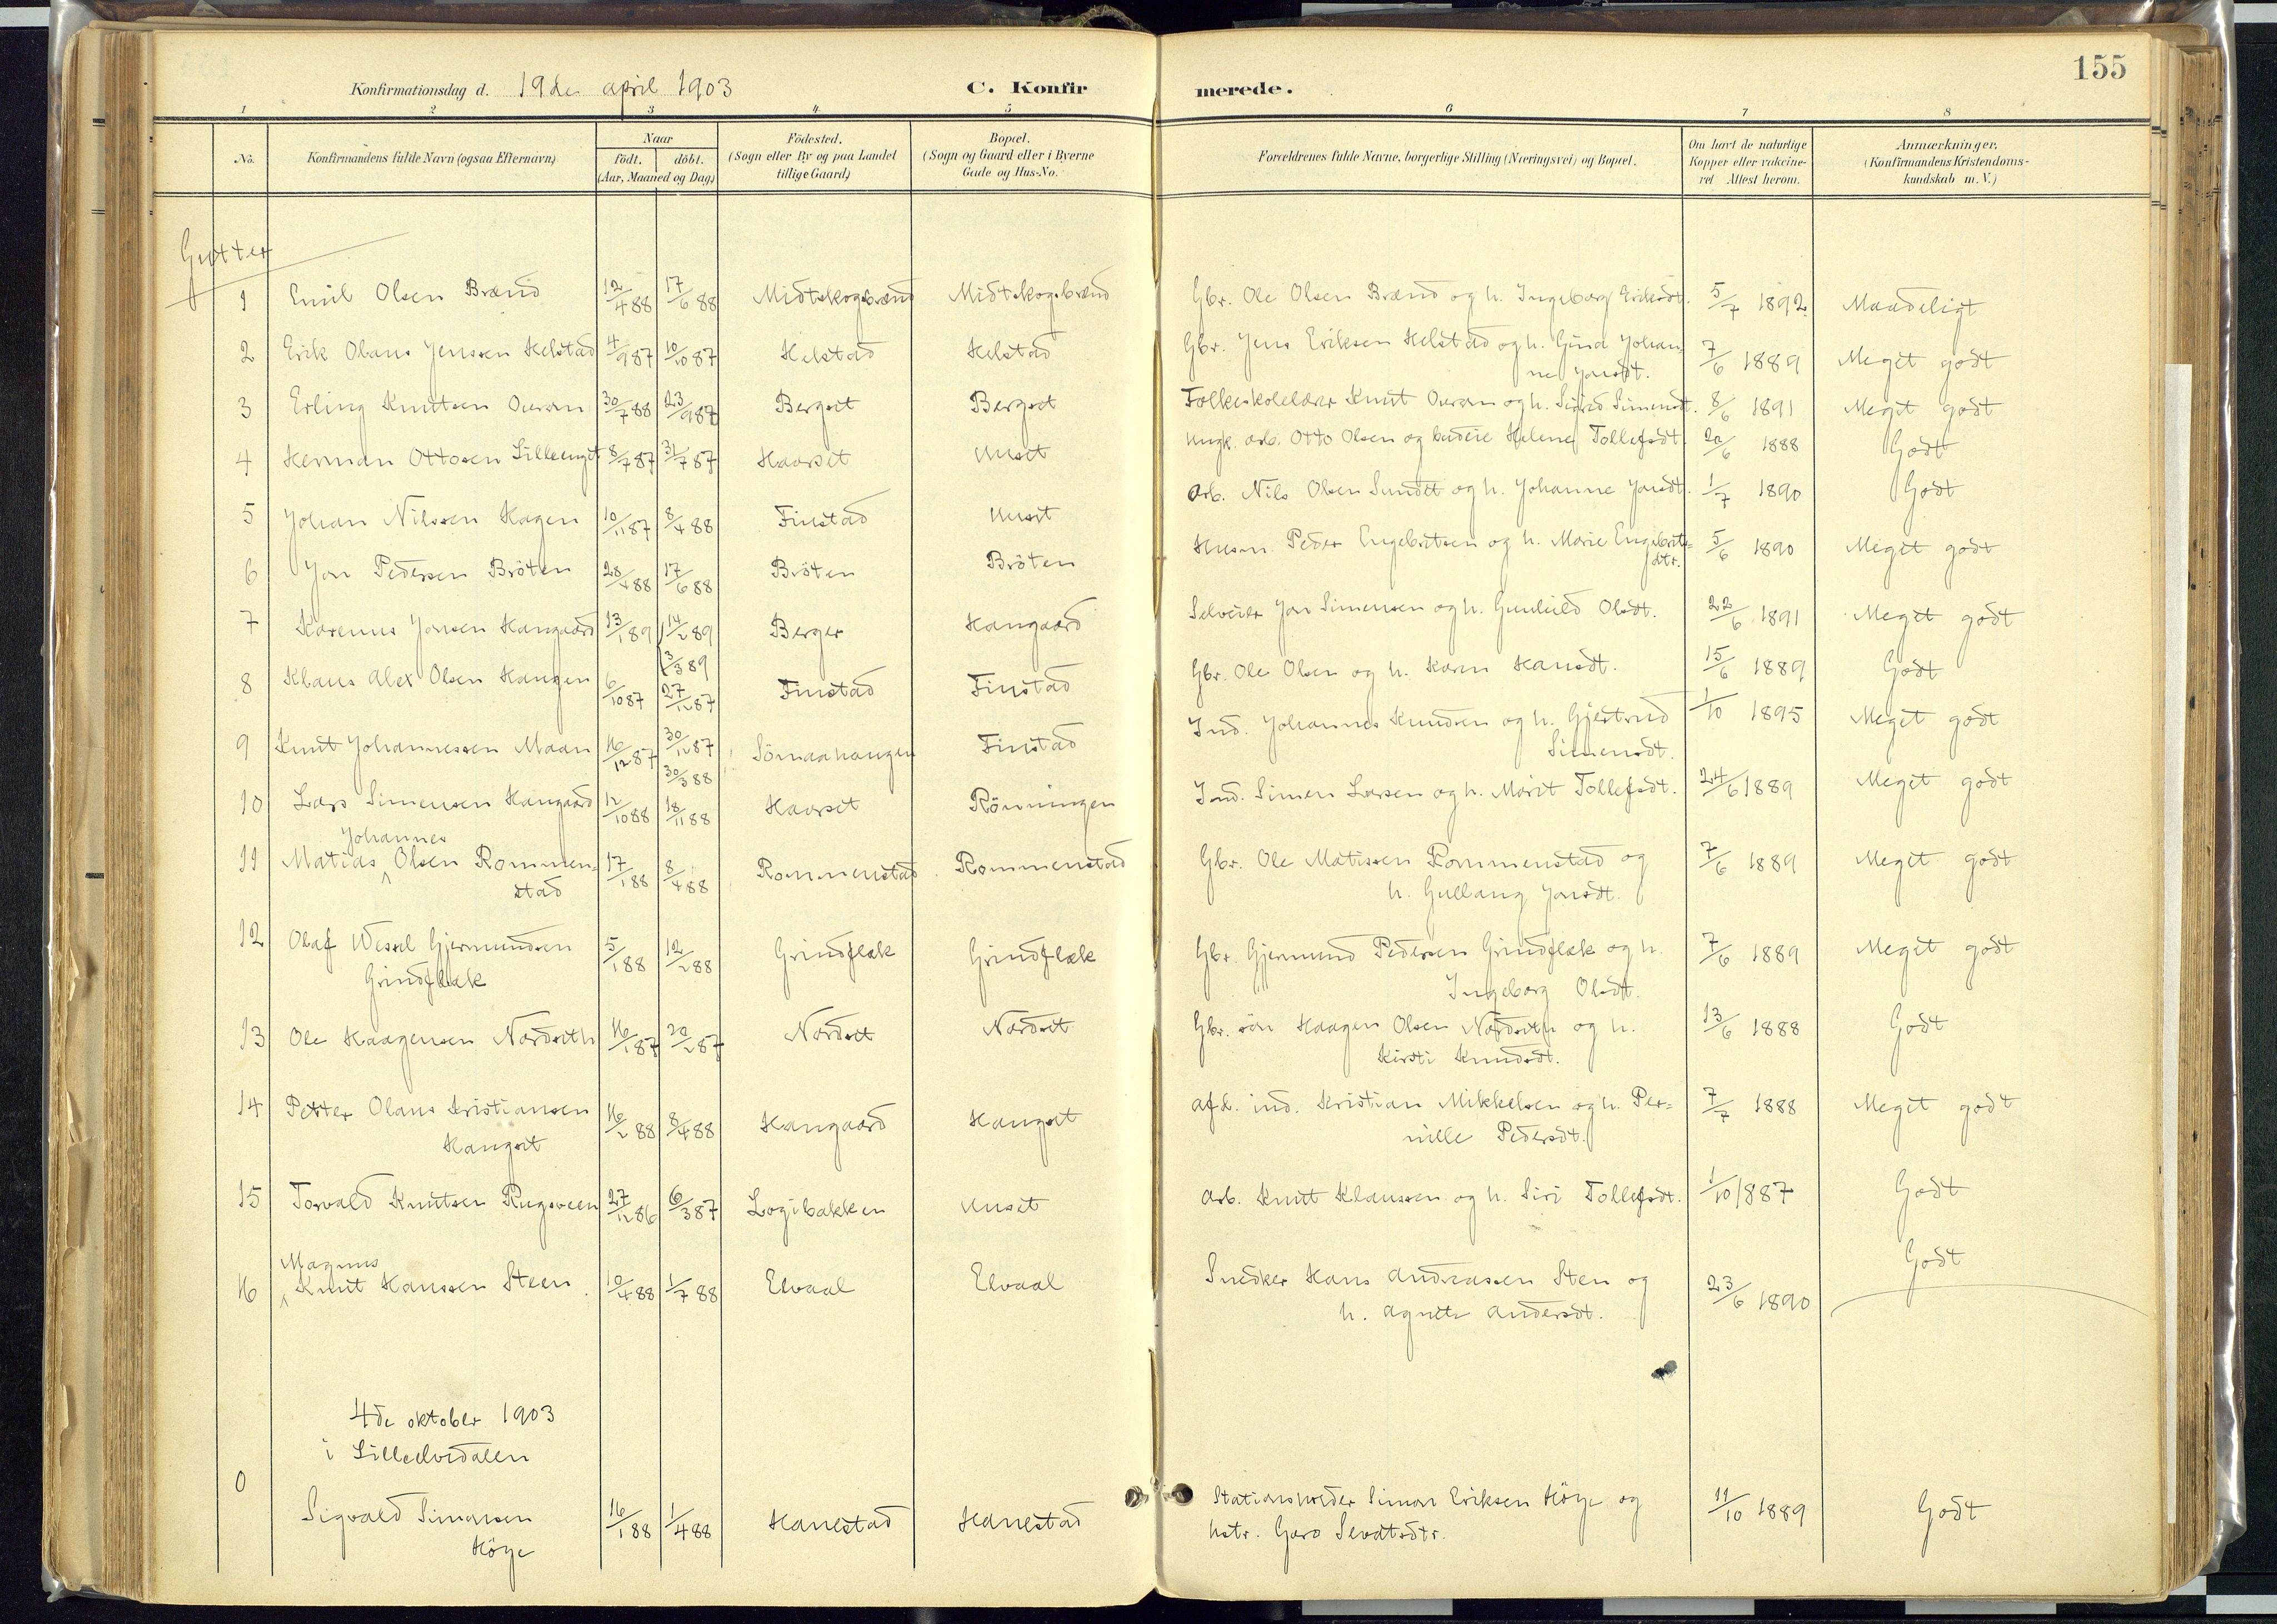 155
Konfirmationsdag d. 19de april 1903 C. Konfirmerede.
1 2 3 4 5 6 7 8
No. Konfirmandens fulde Navn (ogsaa Efternavn) Naar födt. döbt. (Aar, Maaned og Dag) Födested. (Sogn eller By og paa Landet tillige Gaard) Bopæl. (Sogn og Gaard eller i Byerne Gade og Hus-No. Forældrenes fulde Navne, borgerlige Stilling (Næringsvei) og Bopæl. Om havt de naturlige Kopper eller vakcineret Attest herom. Anmærkninger. (Konfirmandens Kristendomskundskab m. V.)
Gutter
1 Emil Olsen Brænd 12/4 88 17/6 88 Midtskogsbrænd Midtskogsbrænd Gbr. Ole Olsen Brænd og h. Ingeborg Eriksdt. 5/7 1892 Maadeligt
2 Erik Olaus Jenssen Helstad 4/9 87 10/10 87 Helstad Helstad Gbr. Jens Eriksen Helstad og h. Gina Johan-
ne Jonsdt. 7/6 1889 Meget godt
3 Erling Knutsen 30/7 88 23/9 87 Berget Berget Folkeskolelærer Knut og h. Sigrid Simensdt. 8/6 1891 Meget godt
4 Herman Ottosen Lilleenget 8/7 87 31/7 87 Haarset Unset Ungk. arb. Otto Olsen og budeie Helene Tollefsdt. 20/6 1888 Godt
5 Johan Nilssen Hagen 10/11 87 8/4 88 Finstad Unset Arb. Nils Olsen Sundet og h. Johanne Jonsdt. 1/7 1890 Godt
6 Jon Pedersen Bröten 28/4 88 17/6 88 Bröten Bröten Husm. Peder Engebretsen og h. Marie Engebrets-
dtr. 5/6 1890 Meget godt
7 Karenus Jonsen Haugaard 13/1 89 14/2 89 Berger Haugaard Selveier Jon Simensen og h. Gunhild Olsdt. 22/6 1891 Meget godt
3/3 89
8 Klaus Alex Olsen Haugen 6/10 87 27/12 87 Finstad Finstad Gbr. Ole Olsen og h. Karen Hansdt. 15/6 1889 Godt
9 Knut Johannessen Moan 16/12 87 30/12 87 Sömaahaugen Finstad Ind. Johannes Knudsen og h. Gjertrud
Simensdt. 1/10 1895 Meget godt
30/3 88
10 Lars Simensen Haugaard 12/10 88 18/11 88 Haarset Rönningen Ind. Simen Larsen og h. Marit Tollefsdt. 24/6 1889 Meget godt
Johannes
11 Matias Olsen Rommen-
stad 17/1 88 8/4 88 Rommenstad Rommenstad Gbr. Ole Matissen Rommenstad og
h. Gullaug Jonsdt. 7/6 1889 Meget godt
12 Olaf Wessel Gjermundsen
Grindflæk 5/1 88 12/2 88 Grindflæk Grindflæk Gbr. Gjermund Pedersen Grindflæk og h.
Ingeborg Olsdt. 7/6 1889 Meget godt
13 Ole Haagensen Nordseth 16/1 87 20/2 87 Nordset Nordset Gbr. sön Haagen Olsen Nordseth og h.
Kirsti Knudsdt. 13/6 1888 Godt
14 Petter Olaus Kristiansen
Haugset 16/2 88 8/4 88 Haugaard Haugset afd. ind. Kristian Mikkelsen og h. Per-
nille Pedersdt. 7/7 1888 Meget godt
15 Torvald Knutsen Rugsveen 27/12 86 6/3 87 Logibakken Unset Arb. Knut Klaussen og h. Siri Tollefsdt. 1/10 1887 Godt
Magnus
16 Knut Hanssen Steen 10/4 88 1/7 88 Elvaal Elvaal Snedker Hans Andreassen Sten og
h. Agnete Andersdt. 23/6 1890 Godt
4de oktober 1903
i Lilleelvedalen
0 Sigvald Simonsen
Höye 16/1 88 1/4 88 Hanestad Hanestad Stationsholder Simon Eriksen Höye og
hstr. Goro 11/10 1889 Godt